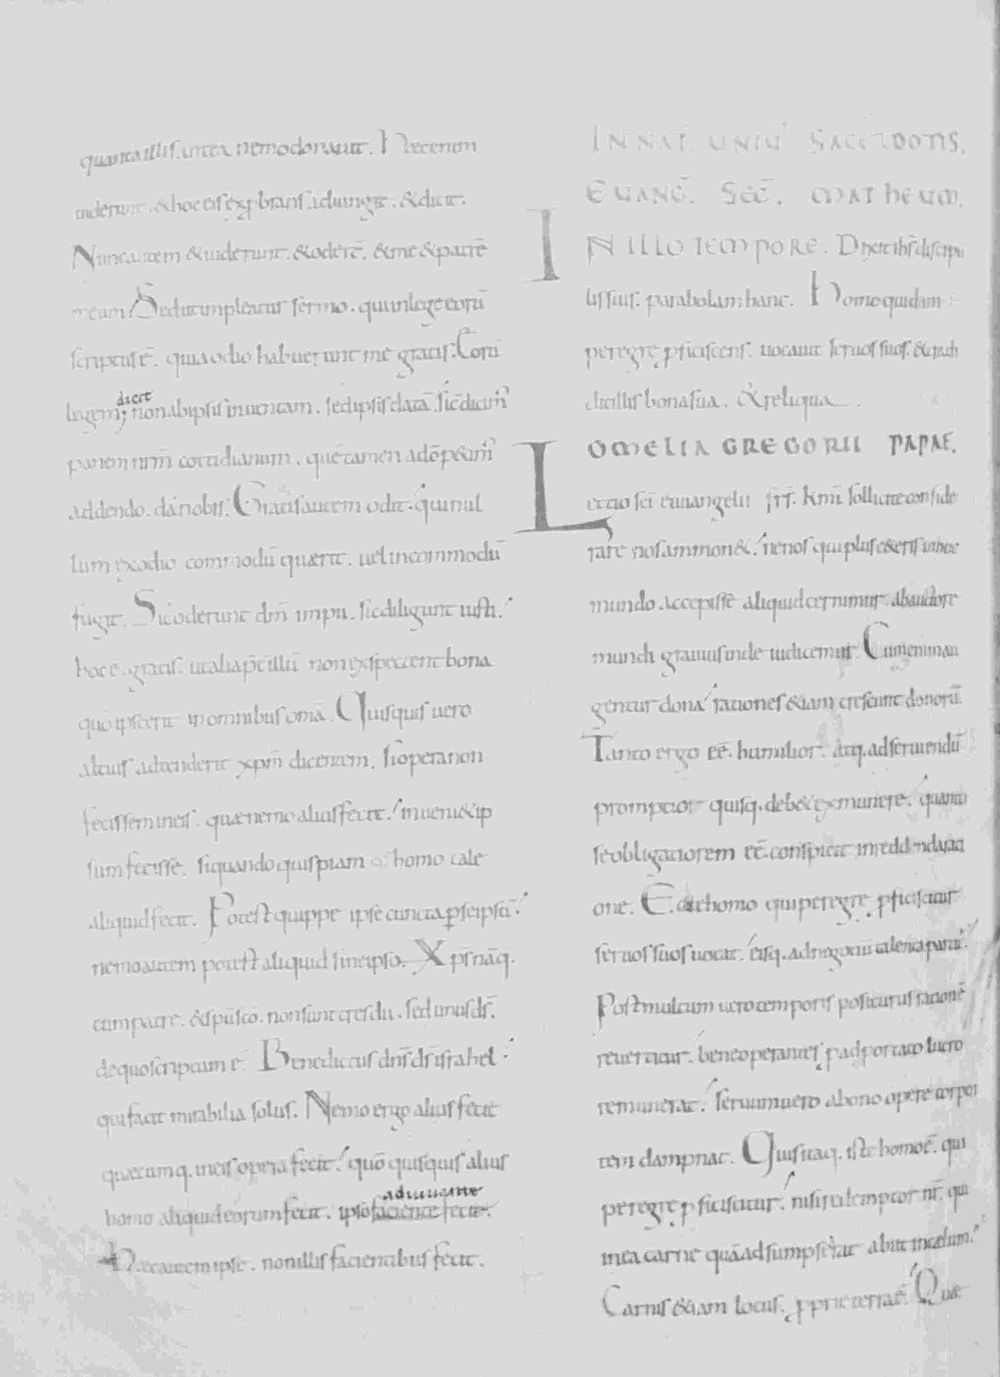 quanta illis. intra nemo donauit. Haec enim
uiderunt. & hoc eis exp̱brans. adiungit. & dicit.
Nunc autem & uiderunt. & oderē. & me & patrē
meum / Sed ut impleatur sermo. qui in lege eorū
scriptus ē. quia odio habuerunt me gratis. Eorū
dicit
legem; non ab ipsis inuentam. sed ipsis datā. sic dicim᷒
panem nr̄m cottidianum. quē tamen adō p&im᷒
addendo. da nobis. Gratis autem odit. qui nul
lum ex odio commodū querit. uel incommodū
fugit. Sic oderunt dm̄ impii. sic diligunt iusti.
hoc ē. gratis. ut alia p̱t̄ illū non expectent bona
quō ipse erit in omnibus omā. Quisquis uero
altius adtenderit xp̄m dicentem. si opera non
fecissem in eis. quae nemo alius fecit. inueni& ip
sum fecisse. si quando quispiam homo tale
aliquid fecit. Potest quippe ipse cuncta p̱ se ipsū.
nemo autem potest aliquid sine ipso. Xp̄s nāq.
cum patre. & sp̄u sc̄o. non sunt tres dii. sed unus ds̄.
de quo scriptum ē. Benedictus dn̄s ds̄ israhel.
qui facit mirabilia solus. Nemo ergo alius fecit
quaecumq. in eis opera fecit. quō quisquis alius
adiuuante
homo aliquid eorum fecit. ipso faciente fecit.
Haec autem ipse. non illis facientibus fecit.
IN NAT. UNIU᷒ SACERDOTIS.
EUANḠ. SEC̄. MATHEUM.
IN ILLO TEMPORE. Dixit ihs̄ discipu
lis suis. parabolam hanc. Homo quidam
peregre p̱ficiscens. uocauit seruos suos. & tradi
dit illis bona sua. & reliqua.
OMELIA GREGORII PAPAE.
Lectio sc̄i euuangelii fr̄s. km̄i sollicite conside
rare nos ammon&. ne nos qui plus c&eris in hoc
mundo accepisse aliquid cernimur. ab auctore
mundi grauius inde iudicemur. Cum enim au
gentur dona rationes &iam crescunt donorū.
Tanto ergo eē. humilior. atq. ad seruiendū
promptior quisq. deb& ex munere. quanto
se obligatiorem eē. conspicit in reddenda rati
one. Ecce homo qui peregre p̱ficiscitur
seruos suos uocat. eisq. ad negociū talenta partit᷒.
Post multum uero temporis positurus rationē
reuertitur. bene operantes p̱ adportato lucro
remunerat. seruum uero a bono opere torpen
tem dampnat. Quis itaq. iste homo ē. qui
peregre p̱ficiscitur. nisi redemptor nr̄. qui
in ea carne quā adsumpserat abiit in celum.
Carnis &iam locus. p̱prie terra ē. Quae